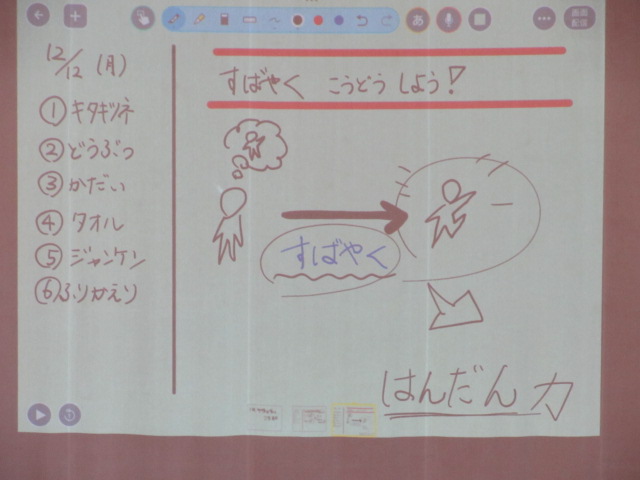 12/12 (月)
① キタギツネ
② どうぶつ
③ かだい
④ タオル
⑤ ジャンケン
⑥ ふりかえり
すばやく こうどう しよう!
すばやく
はんだん力
あ
画面配信